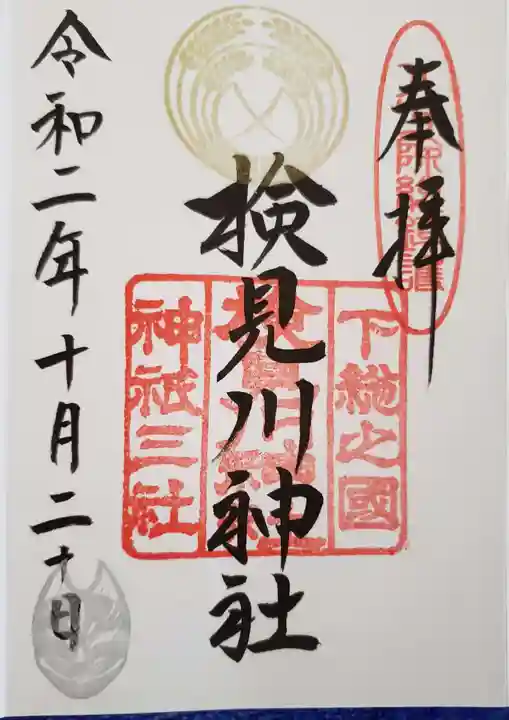 奉拝
下総之國
検見川神社
神祇三社
令和二年十月二十日